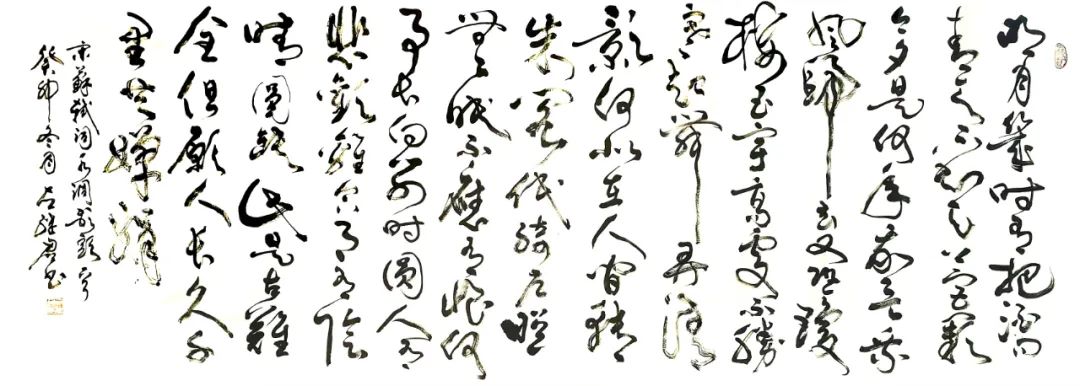 明月幾时有把酒问
青天不知天上宫阙
今夕是何年我欲乘
風歸去又恐瓊
樓玉宇高處不勝
寒起舞弄清
影何似在人间轉
朱阁低绮户照
無眠不應有恨何
事长向别时圆人有
悲歡離合月有陰
晴圆缺此是古難
全但願人长久千
里共嬋娟
宋蘇軾词水调歌頭
癸卯冬月